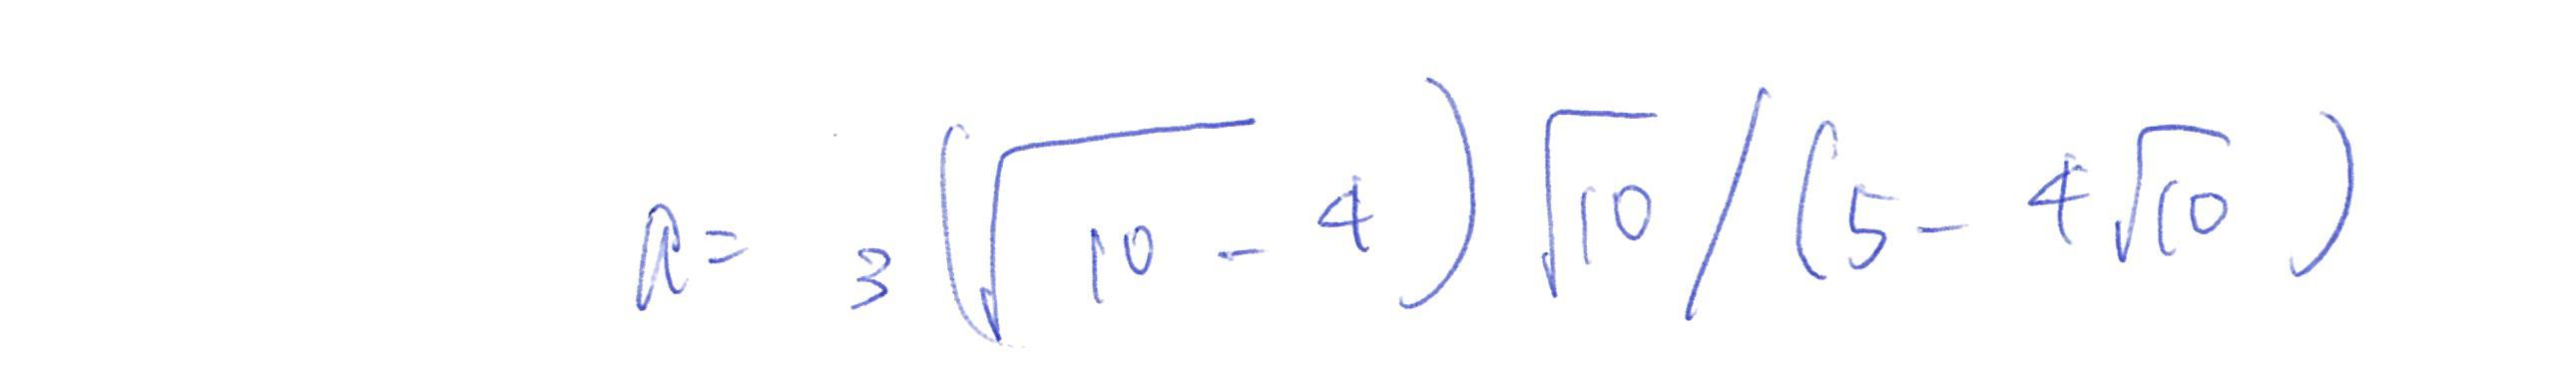 a = 3(√10 - 4)√10/(5 - 4√10)